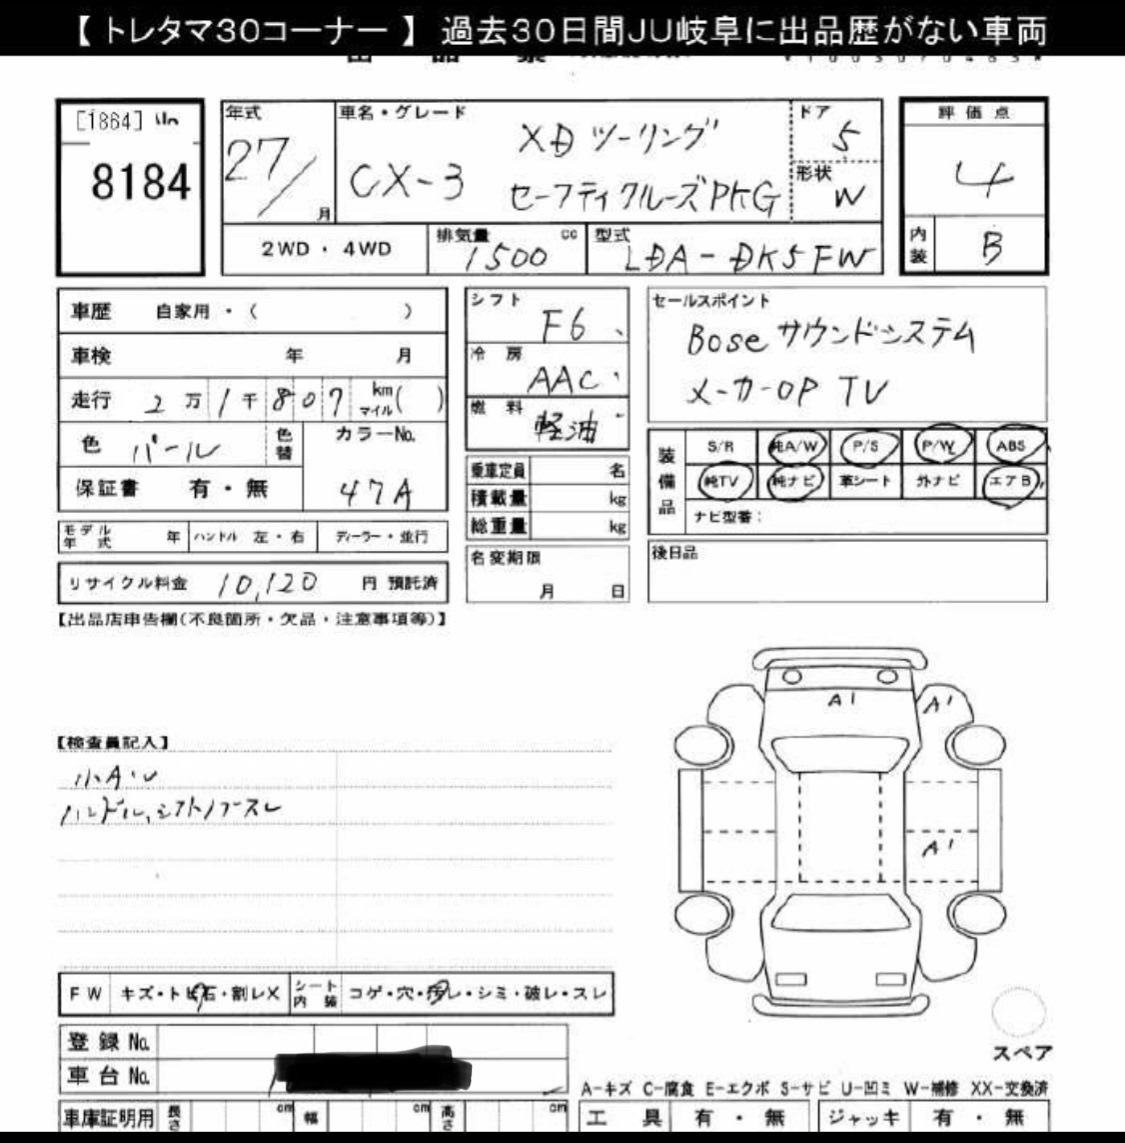 【 トレタマ30コーナー 】 過去30日間JU岐阜に出品歴がない車両
[1864]
8184
年式
27/
月
車名・グレード
XD ツーリング
CX-3
セーフティクルーズPKG
ドア
5
形状
W
評価点
4
内装
B
2WD・4WD
排気量
cc
1500
型式
LDA-DK5FW
車歴 自家用・( )
車検 年 月
走行 2万1千807 km マイル( )
色 パール
色替
カラーNo.
47A
保証書 有・無
モデル年式 年
ハンドル 左・右
ディーラー・並行
リサイクル料金 10,120 円 預託済
シフト
F6
冷房
AAC
燃料
軽油
乗車定員 名
積載量 kg
総重量 kg
名変期限
月 日
セールスポイント
Bose サウンドシステム
メーカーOP TV
装備品
S/R 純A/W P/S P/W ABS
純TV 純ナビ 革シート 外ナビ エアB
ナビ型番:
後日品
【出品店申告欄(不良箇所・欠品・注意事項等)】
【検査員記入】
小A・U
ハンドル、シフトノブスレ
A1
A1
A1
FW キズ・トビ石・割レX
シート内装 コゲ・穴・汚レ・シミ・破レ・スレ
登録No.
車台No.
車庫証明用 長さ cm 幅 cm 高さ cm
スペア
A-キズ C-腐食 E-エクボ S-サビ U-凹ミ W-補修 XX-交換済
工具 有・無
ジャッキ 有・無